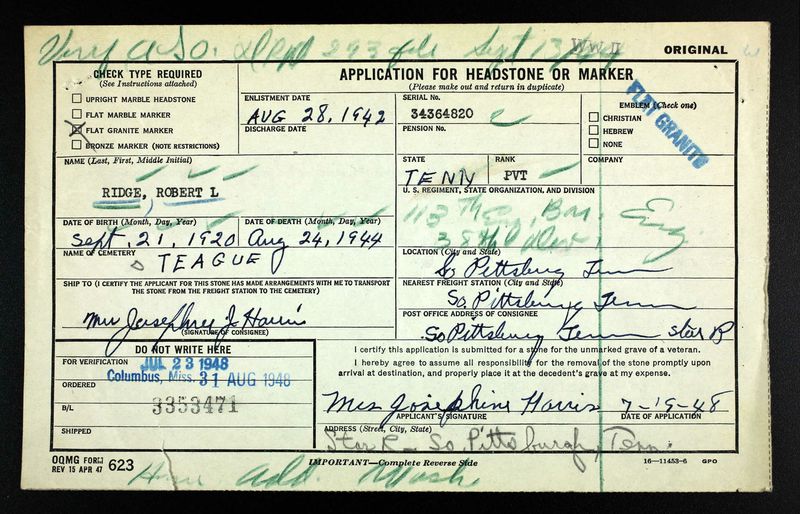 Sept 13/44
WW II
ORIGINAL
CHECK TYPE REQUIRED
(See Instructions attached)
UPRIGHT MARBLE HEADSTONE
FLAT MARBLE MARKER
FLAT GRANITE MARKER
BRONZE MARKER (NOTE RESTRICTIONS)
APPLICATION FOR HEADSTONE OR MARKER
(Please make out and return in duplicate)
ENLISTMENT DATE
AUG 28, 1942
DISCHARGE DATE
SERIAL No.
34364820
PENSION No.
EMBLEM (Check one)
CHRISTIAN
HEBREW
NONE
FLAT GRANITE
NAME (Last, First, Middle Initial)
RIDGE, ROBERT L
STATE
TENN
RANK
PVT
COMPANY
U. S. REGIMENT, STATE ORGANIZATION, AND DIVISION
113th Eng. Bn.
38th Div.
DATE OF BIRTH (Month, Day, Year)
Sept. 21, 1920
DATE OF DEATH (Month, Day, Year)
Aug 24, 1944
NAME OF CEMETERY
TEAGUE
LOCATION (City and State)
So Pittsburg Tenn
SHIP TO (I CERTIFY THE APPLICANT FOR THIS STONE HAS MADE ARRANGEMENTS WITH ME TO TRANSPORT
THE STONE FROM THE FREIGHT STATION TO THE CEMETERY)
Mrs Josephine Harris
(SIGNATURE OF CONSIGNEE)
NEAREST FREIGHT STATION (City and State)
So. Pittsburg Tenn
POST OFFICE ADDRESS OF CONSIGNEE
So Pittsburg Tenn Star R
DO NOT WRITE HERE
FOR VERIFICATION
JUL 23 1948
Columbus, Miss. 31 AUG 1948
ORDERED
B/L
3353471
SHIPPED
I certify this application is submitted for a stone for the unmarked grave of a veteran.
I hereby agree to assume all responsibility for the removal of the stone promptly upon
arrival at destination, and properly place it at the decedent's grave at my expense.
Mrs Josephine Harris 7-19-48
APPLICANT'S SIGNATURE
DATE OF APPLICATION
ADDRESS (Street, City, State)
Star R - So. Pittsburgh, Tenn.
OQMG FORM
REV 15 APR 47
623
IMPORTANT—Complete Reverse Side
16—11453-6 GPO